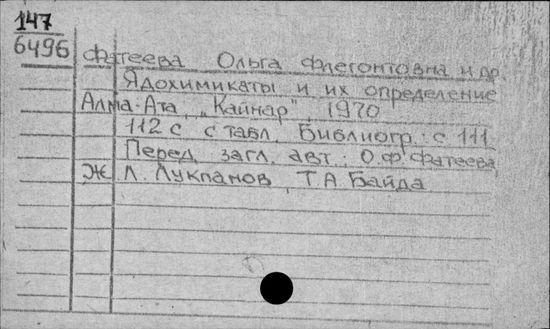 147
6496
Фатеева Ольга Флегонтовна и др.
Ядохимикаты и их определение
Алма-Ата, „Кайнар", 1970
112 с. с табл. Библиогр.: с 111
Перед загл. авт.: О.Ф. Фатеева,
Ж. Л. Лукпанов, Т.А. Байда